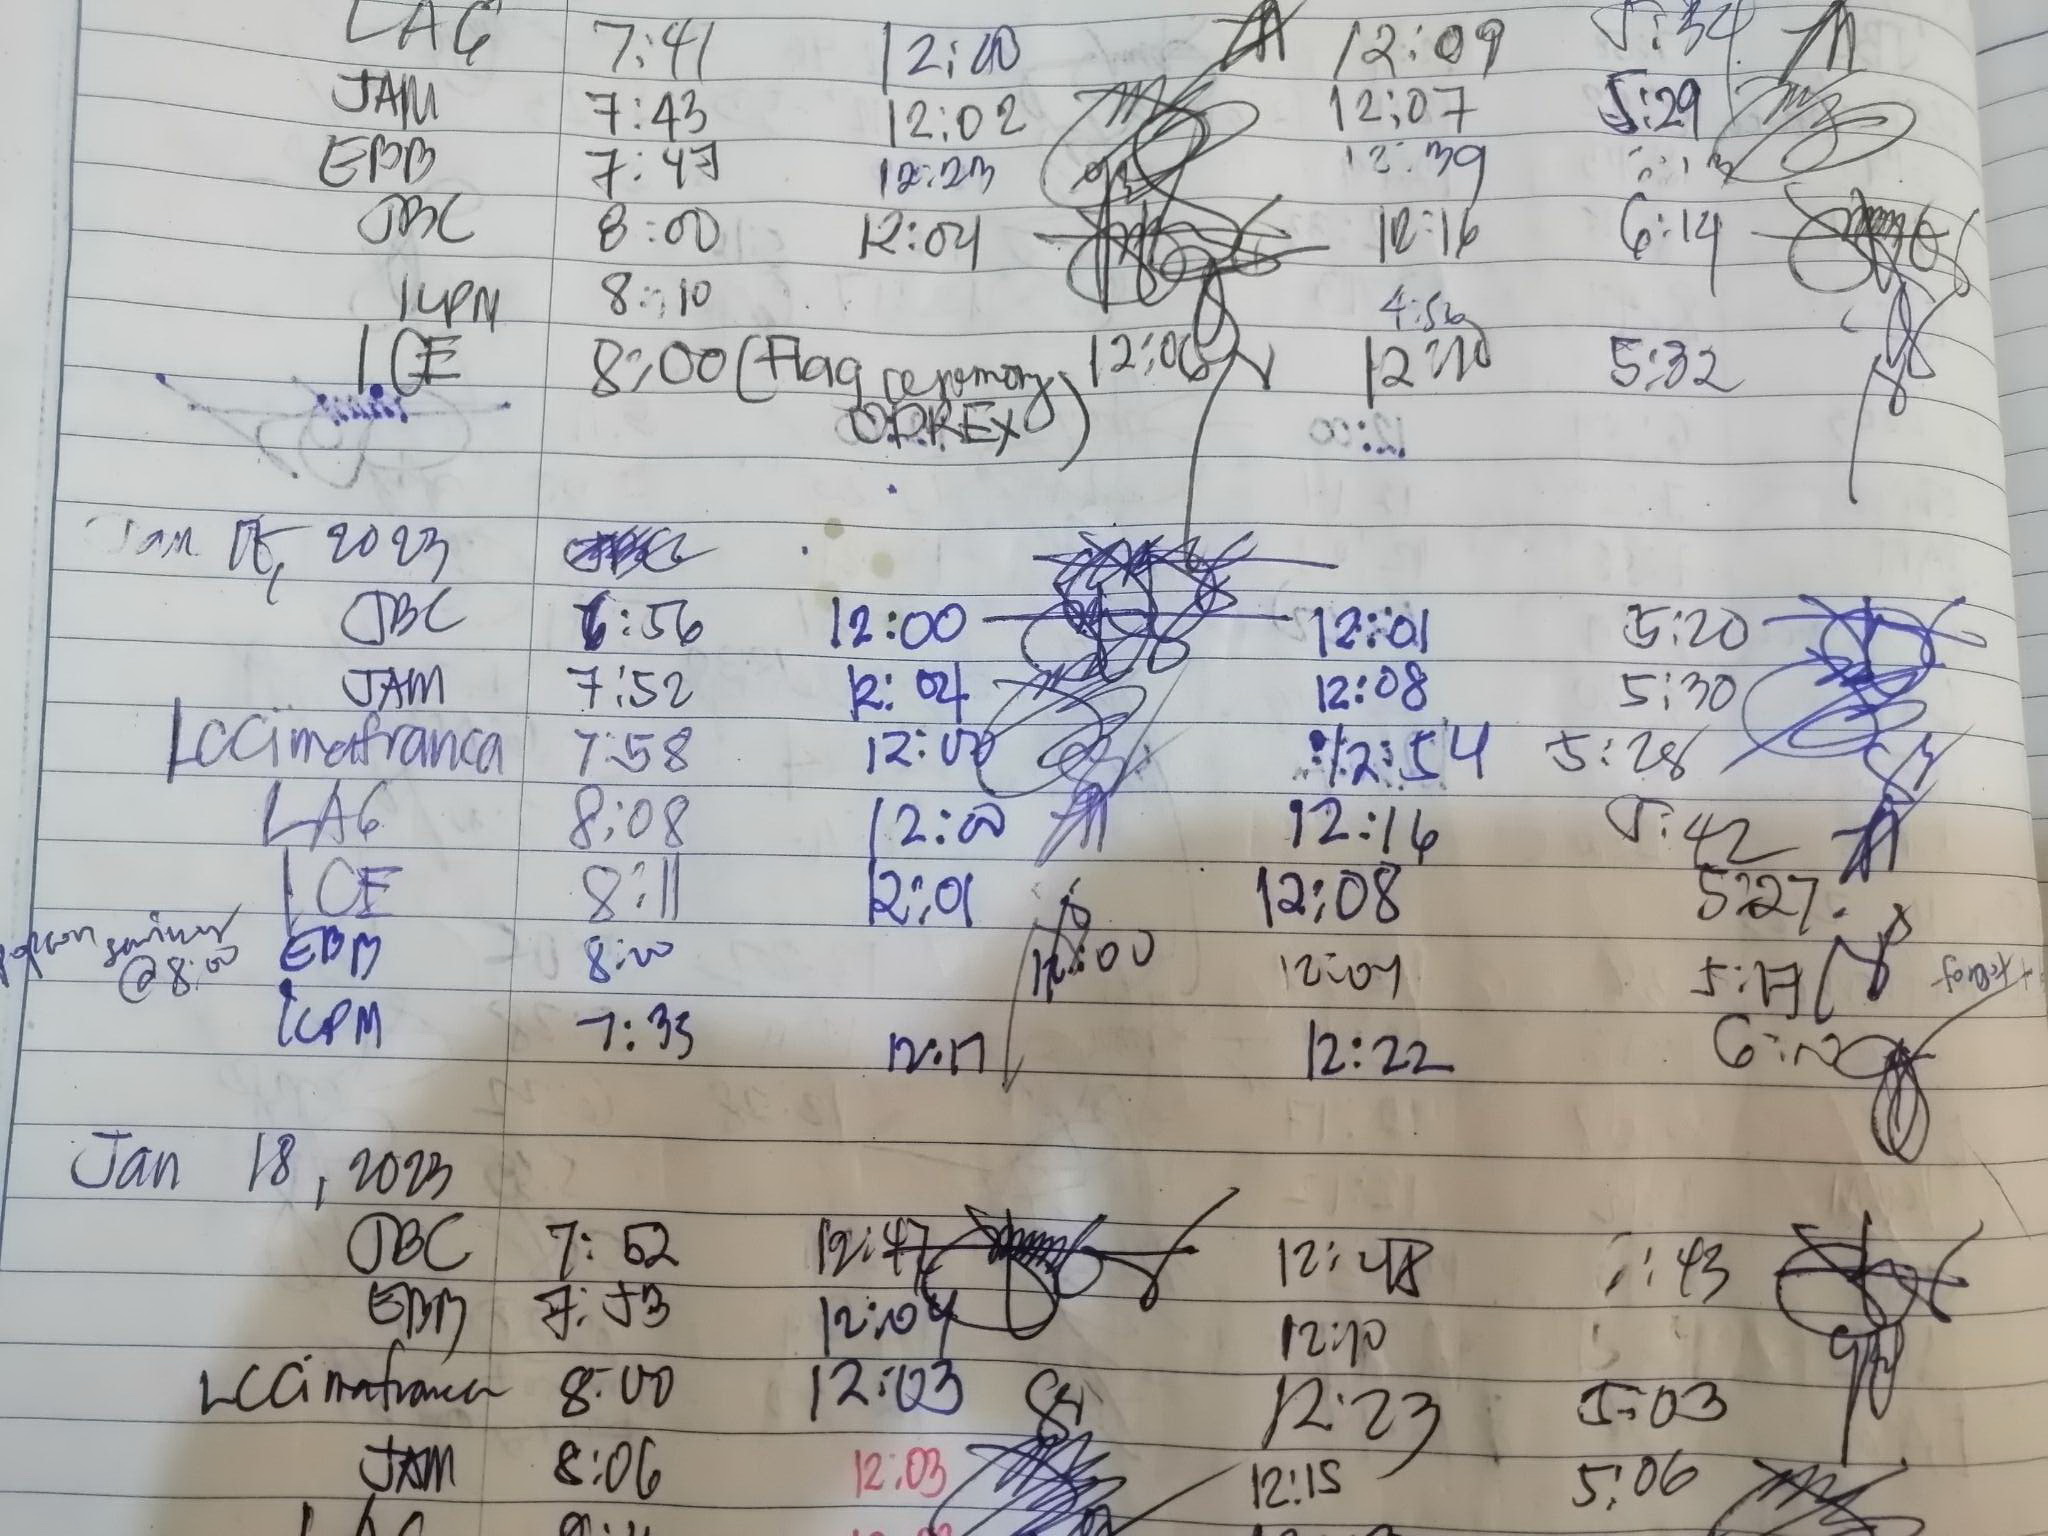 LAG 7:41 12:00 12:09 5:34
JAM 7:43 12:02 12:07 5:29
EBB 7:47 12:23 12:39
JBC 8:00 12:04 12:16 6:14
ICPM 8:10 4:56
LCE 8:00 (Flag ceremony 12:06 12:10 5:32
OPKEx)
12:00
Jan 17, 2023
JBC 6:56 12:00 12:01 5:20
JAM 7:52 12:04 12:08 5:30
LCCimafranca 7:58 12:00 12:54 5:28
LAG 8:08 12:00 12:16 5:42
LCE 8:11 12:01 12:08 5:27
EBB 8:00 12:00 12:04 5:17
@8:00
ICPM 7:33 12:17 12:22
Jan 18, 2023
JBC 7:52 12:47 12:48 :43
EBB 7:53 12:04 12:10
LCCimafranca 8:00 12:03 12:23 5:03
JAM 8:06 12:03 12:15 5:06